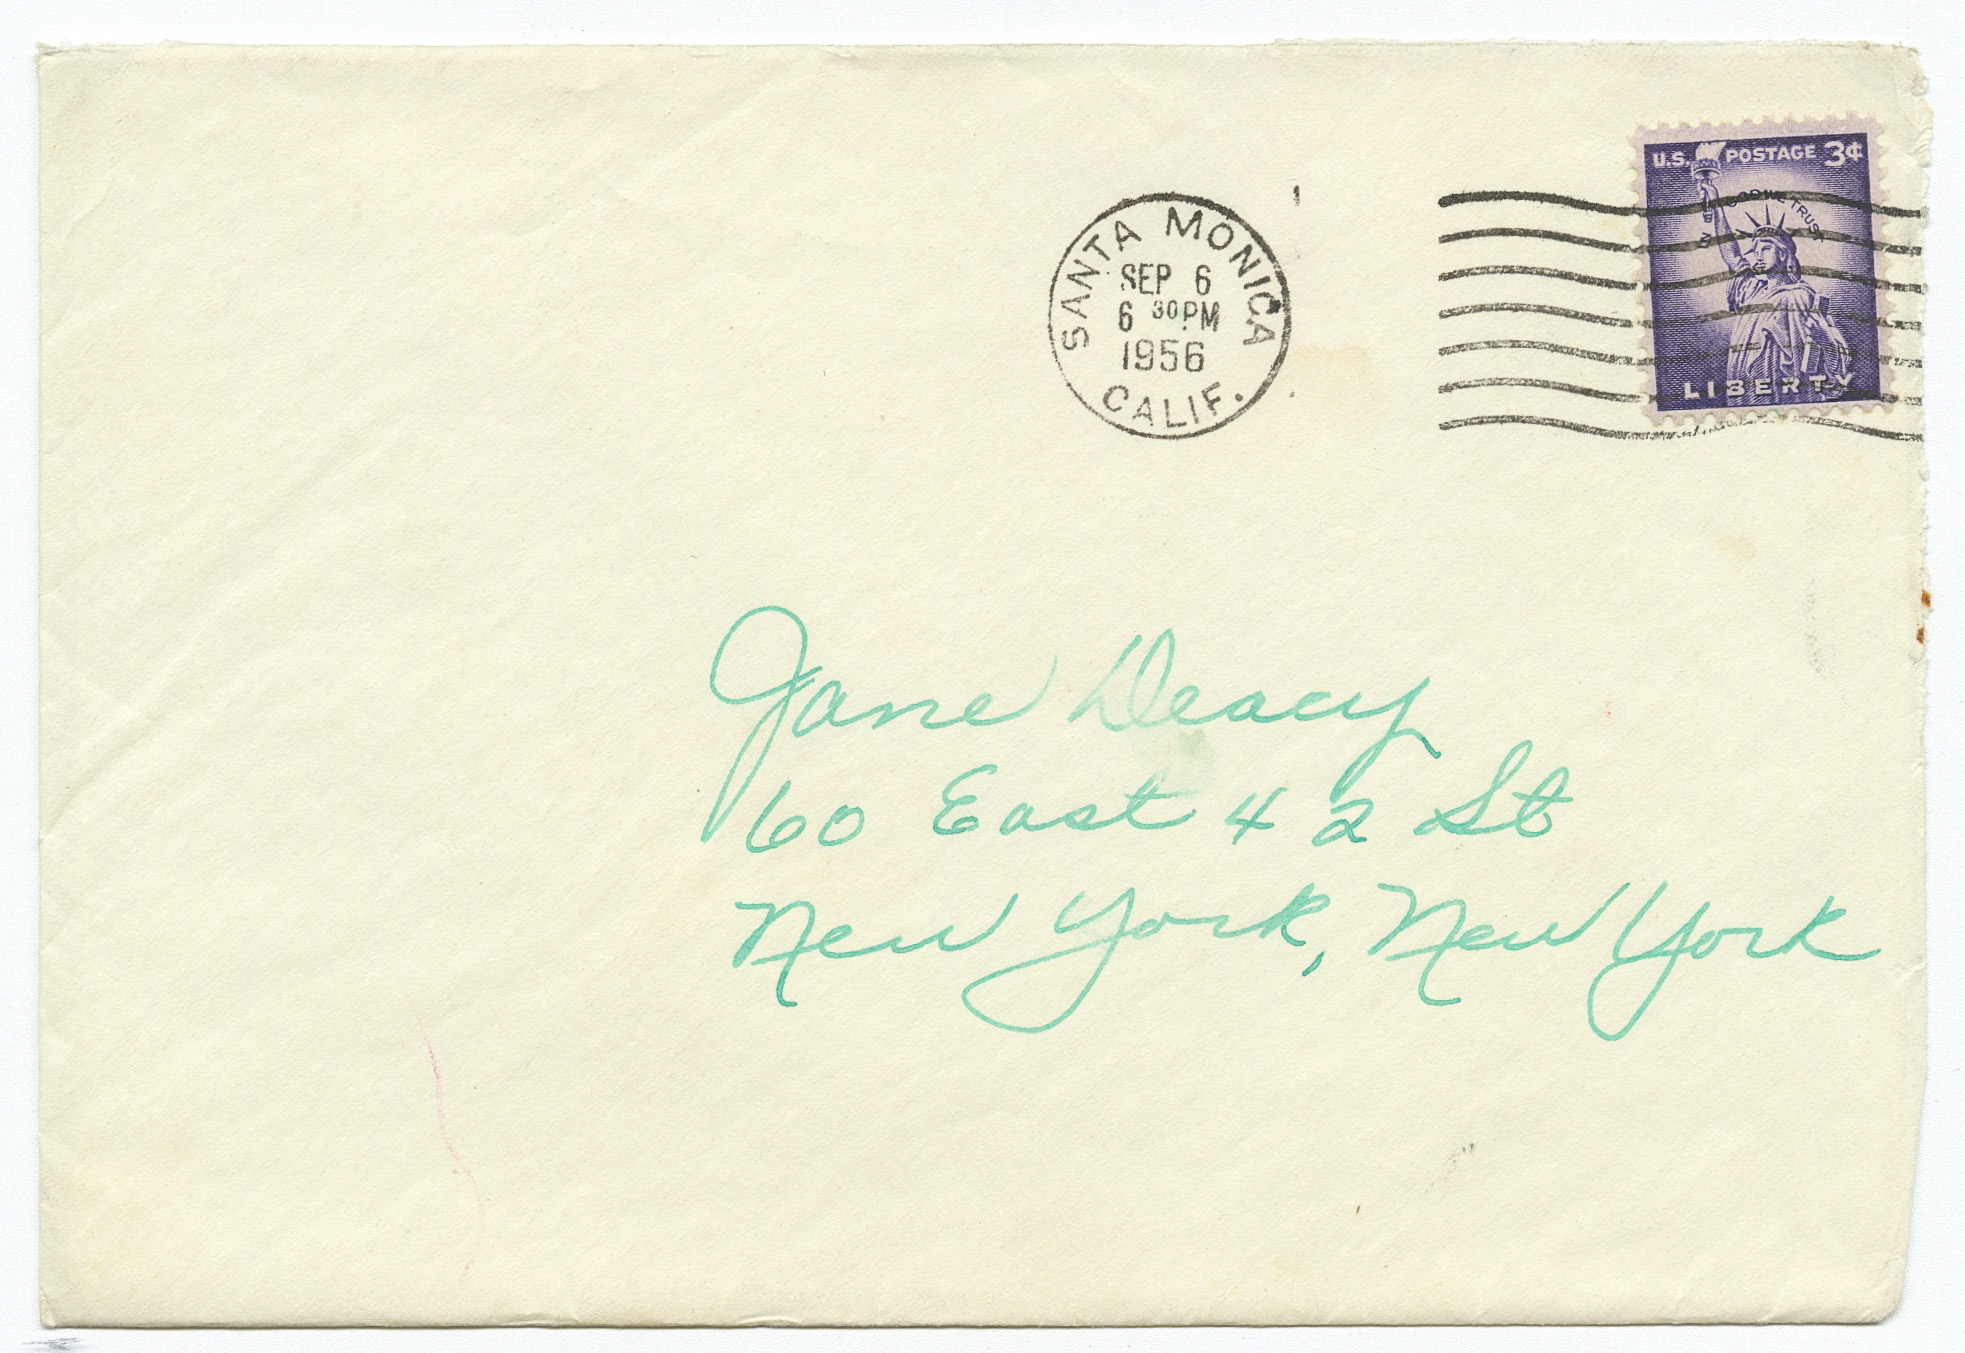 U.S. POSTAGE 3¢
IN GOD WE TRUST
LIBERTY
SANTA MONICA
SEP 6
6 30 PM
1956
CALIF.
Jane Deacy
60 East 42 St
New York, New York